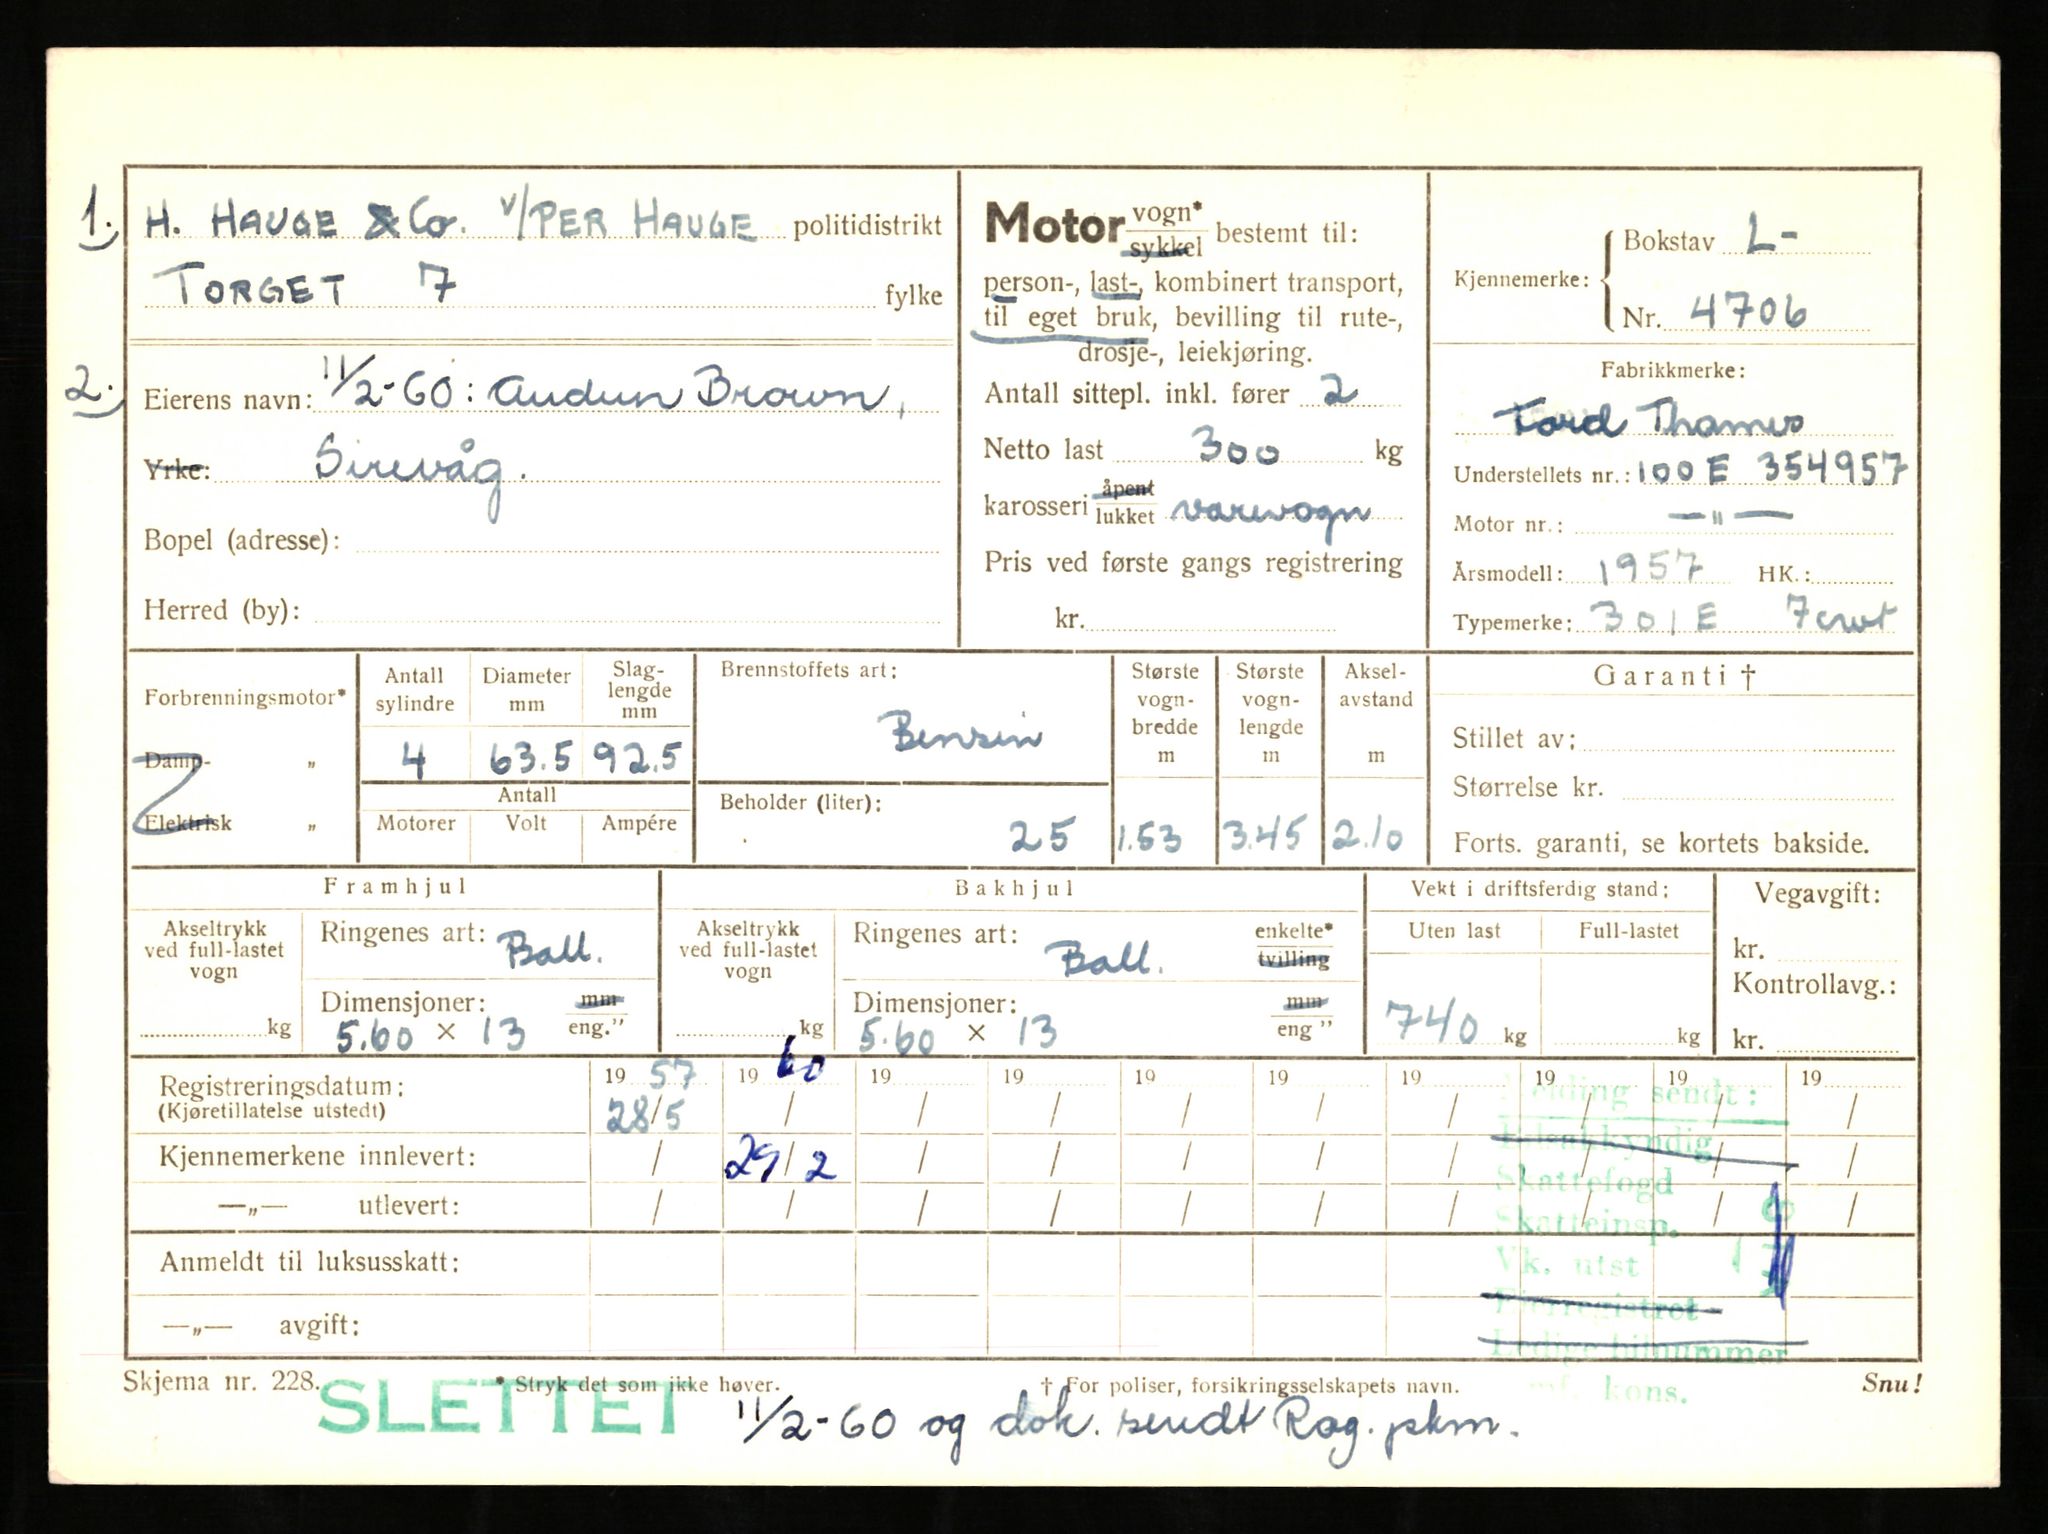 1. H. HAUGE & Co. v/PER HAUGE politidistrikt
TORGET 7 fylke
2. Eierens navn: 11/2-60: Audun Brown,
Yrke: Sirevåg.
Bopel (adresse):
Herred (by):
Motor vogn* sykkel bestemt til:
person-, last-, kombinert transport,
til eget bruk, bevilling til rute-,
drosje-, leiekjøring.
Antall sittepl. inkl. fører 2
Netto last 300 kg
karosseri åpent lukket varevogn
Pris ved første gangs registrering
kr.
Kjennemerke: Bokstav L-
Nr. 4706
Fabrikkmerke:
Ford Thames
Understellets nr.: 100 E 354957
Motor nr.: — " —
Årsmodell: 1957 HK.:
Typemerke: 301 E 7 cwt
Forbrenningsmotor*
Damp- "
Elektrisk "
Antall sylindre Diameter mm Slag-lengde mm
4 63.5 92.5
Antall
Motorer Volt Ampére
Brennstoffets art:
Bensin
Beholder (liter):
25
Største vogn-bredde m
1.53
Største vogn-lengde m
3.45
Aksel-avstand m
2.10
Garanti †
Stillet av:
Størrelse kr.
Forts. garanti, se kortets bakside.
Framhjul
Akseltrykk ved full-lastet vogn
kg
Ringenes art: Ball.
Dimensjoner: mm
5.60 × 13 eng."
Bakhjul
Akseltrykk ved full-lastet vogn
kg
Ringenes art: Ball. enkelte* tvilling
Dimensjoner: mm
5.60 × 13 eng "
Vekt i driftsferdig stand:
Uten last Full-lastet
740 kg kg
Vegavgift:
kr.
Kontrollavg.:
kr.
Registreringsdatum: 19 57 19 60 19 19 19 19 19 19 19 19
(Kjøretillatelse utstedt) 28/5 / / / / / / / / /
Kjennemerkene innlevert: / 29/2 / / / / / / / /
—„— utlevert: / / / / / / / / / /
Anmeldt til luksusskatt:
—„— avgift:
Melding sendt:
Bilsakkyndig
Skattefogd
Skatteinsp.
Vk. utst
Fjerregistret
Ledige bilnummer
kons.
Skjema nr. 228. * Stryk det som ikke høver. † For poliser, forsikringsselskapets navn. Snu!
SLETTET 11/2-60 og dok. sendt Rog. pkm.